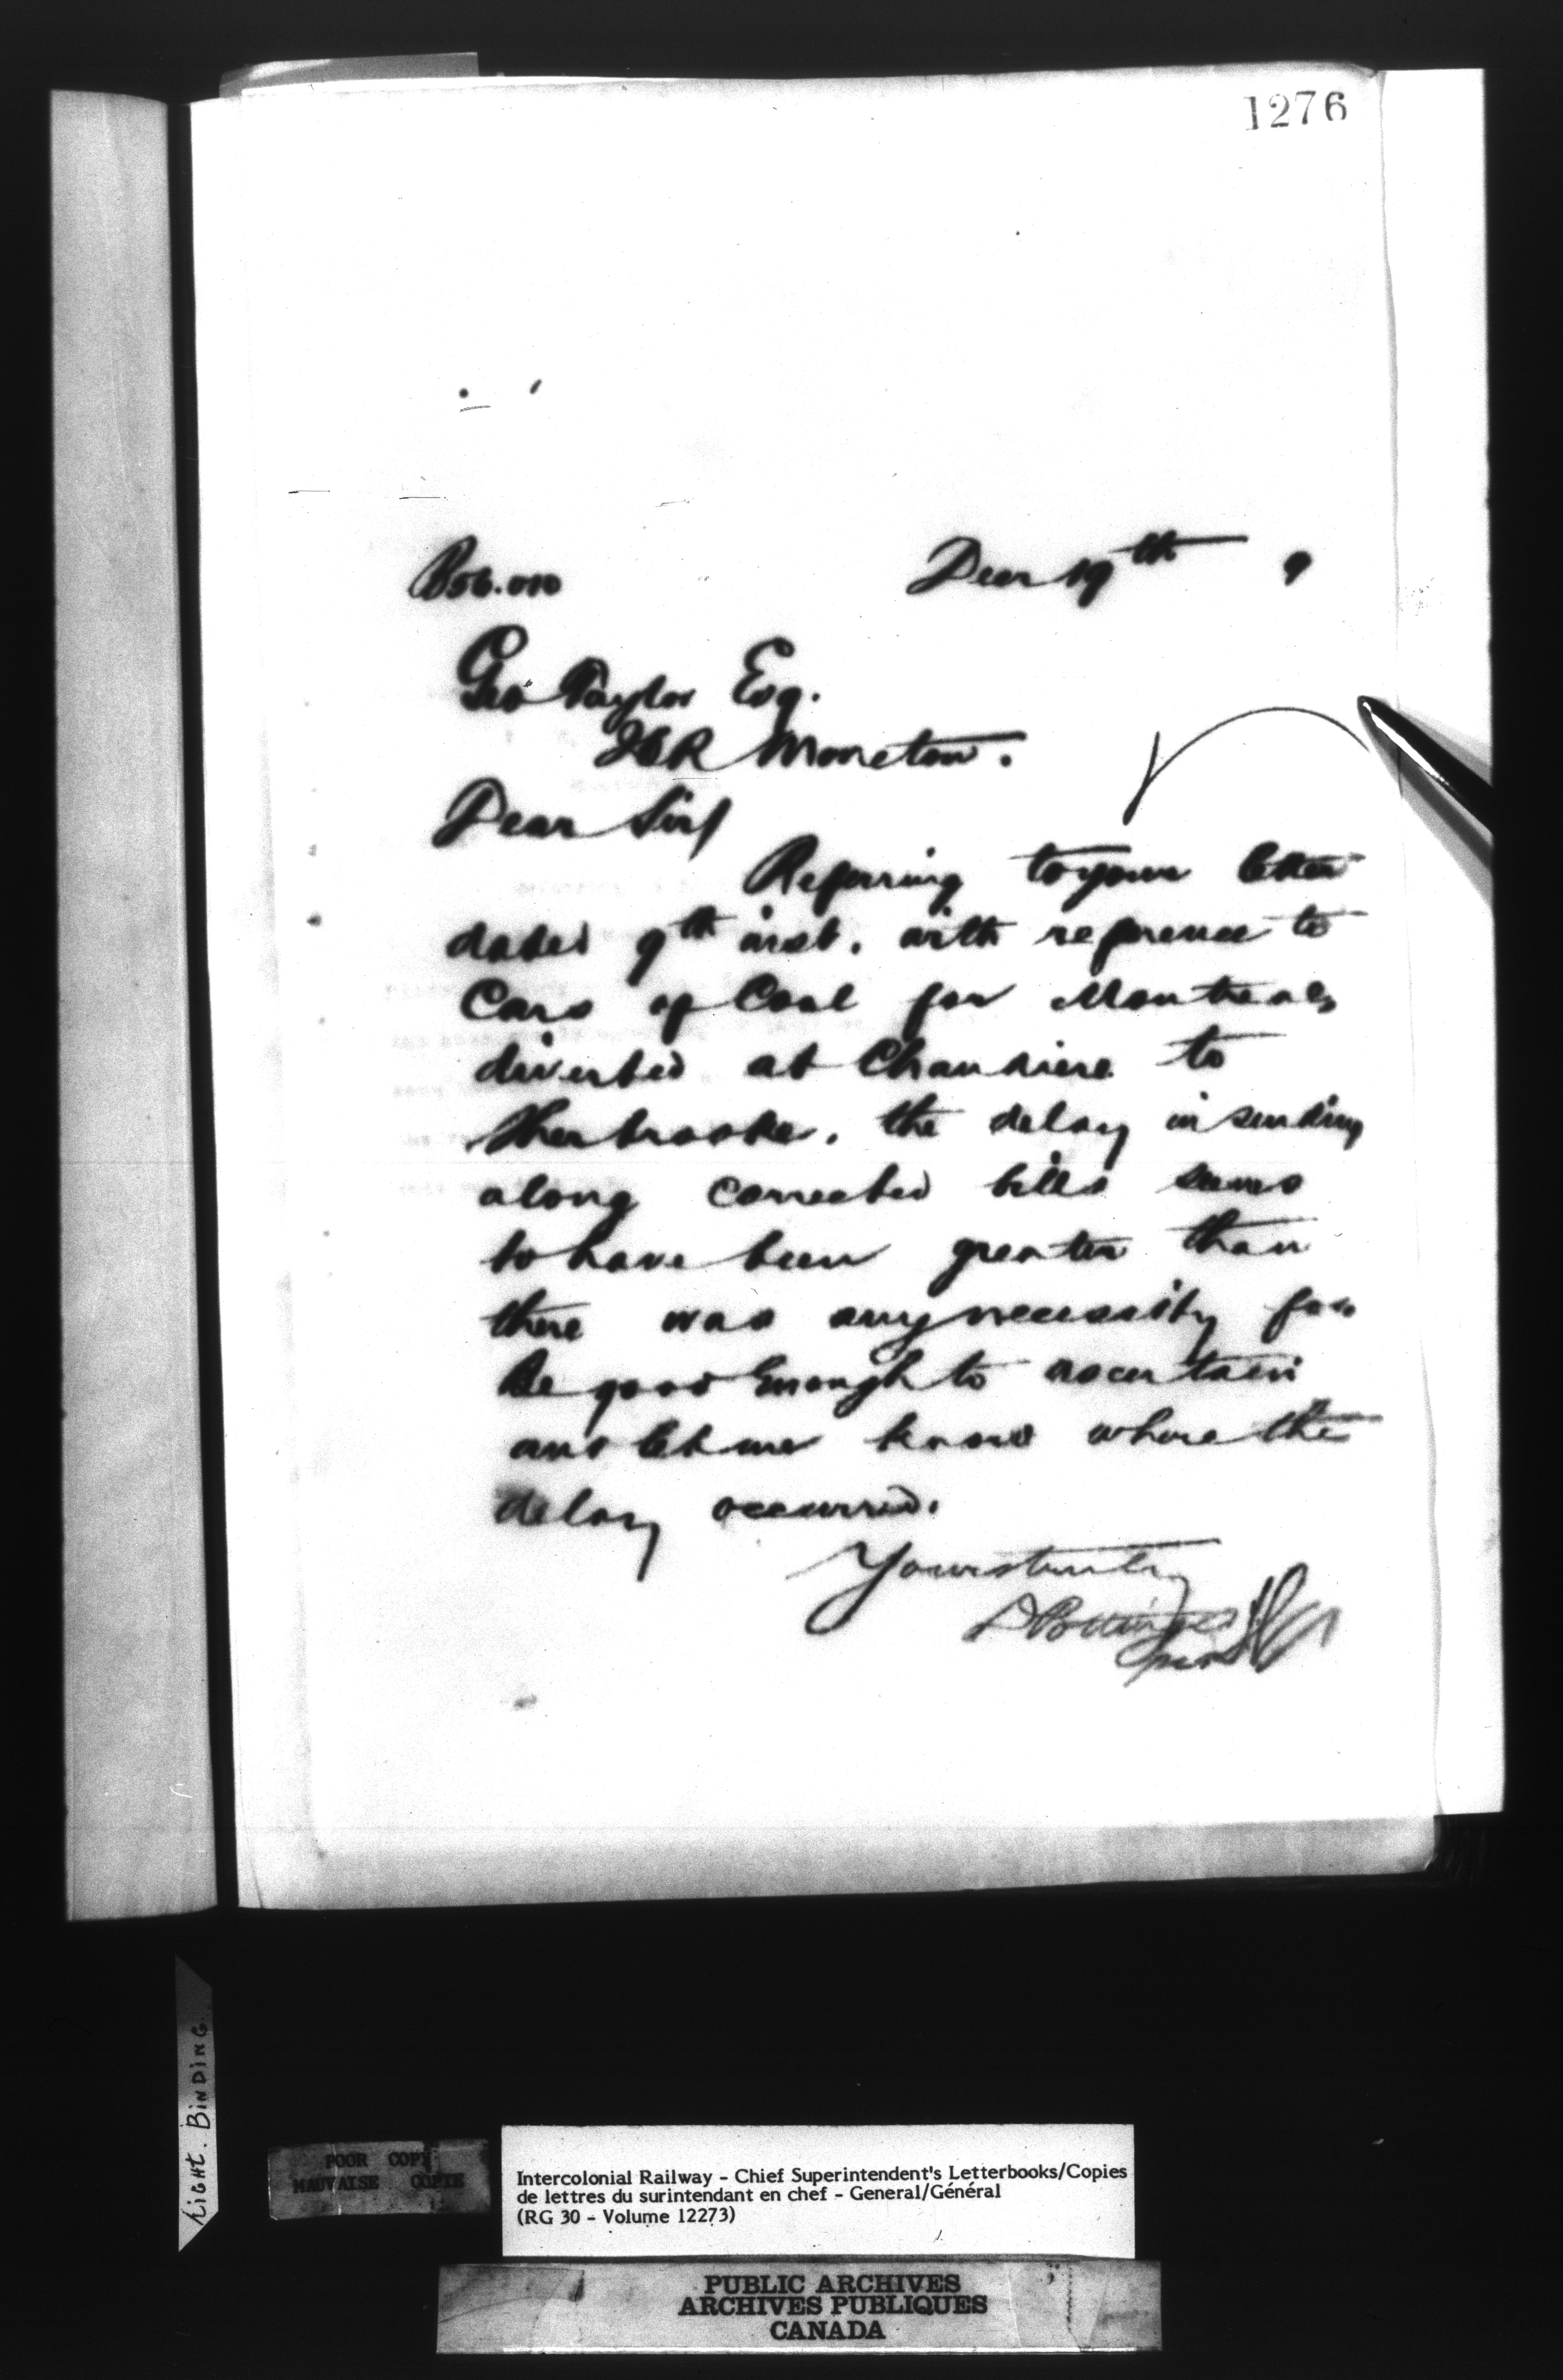 1276
B56.010
Decr 19th 9
Geo Taylor Esq.
ICR Moncton.
Dear Sir/
Referring to your letter
dated 9th inst. with reference to
Cars of Coal for Montreal,
diverted at Chaudiere to
Sherbrooke, the delay in sending
along corrected bills seems
to have been greater than
there was any necessity for
Be good Enough to ascertain
and let me know where the
delay occurred.
Yours truly
D Pottinger
per
TIGHT. BINDING.
POOR COPY
MAUVAISE COPIE
Intercolonial Railway - Chief Superintendent's Letterbooks/Copies
de lettres du surintendant en chef - General/Général
(RG 30 - Volume 12273)
PUBLIC ARCHIVES
ARCHIVES PUBLIQUES
CANADA